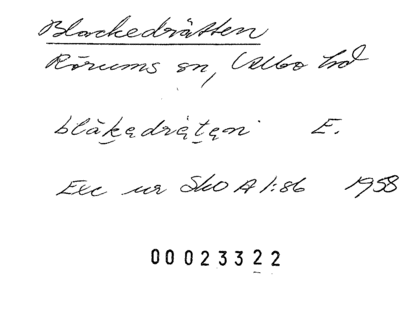 Blackedrätten
Rörums sn, Albo hd
blakedrätani E.
Exc ur SkO A 1:86 1958
00023322